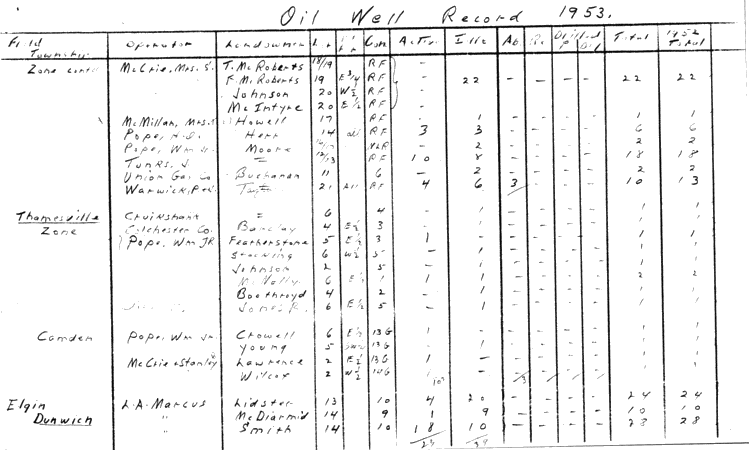 Oil Well Record 1953.
Field Township Operator Landowner Lot Con. Active Idle Ab Total 1952 Total
Zone McCrie, Mrs. S. T. McRoberts 18/19 RF -
F. McRoberts 19 E 3/4 RF - 22 - - - - 22 22
Johnson 20 W½ RF -
McIntyre 20 E½ RF -
McMillan, Mrs. Howell 17 RF - 1 - - - - 1 1
Pope, Herr 14 RF 3 3 - - - - 6 6
Pope, Wm Jr. Moore - 2 - - - - 2 2
12/13 RF 10 8 - - - - 18 18
Union Gas Co Buchanan 11 6 - 2 - - - - 2 2
Warwick, 21 All RF 4 6 3 - - - 10 13
Thamesville Cruikshank = 6 4 - 1 - - - - 1 1
Zone Colchester Co. Barclay 4 E½ 3 - 1 - - - - 1 1
Pope, Wm JR. Featherstone 5 E½ 3 1 - - - - - 1 1
Stocking 6 W½ 5 - 1 - - - - 1 1
Johnson 2 5 - 1 - - - - 1 1
McNally 6 E½ 1 1 1 - - - - 2 2
Boothroyd 4 2 - 1 - - - - 1 1
Jones R. 6 E½ 5 - 1 - - - - 1 1
Camden Pope, Wm Jr. Crowell 6 E½ 13G 1 - - - - - 1 1
Young 5 13G 1 - - - - - 1 1
McCrie & Stanley Lawrence 2 E½ 13G 1 - - - - - 1 1
Wilcox 2 W½ 10G
Elgin L.A. Marcus Lidster 13 10 4 20 - - - - 24 24
Dunwich " McDiarmid 14 9 1 9 - - - - 10 10
" Smith 14 10 18 10 - - - - 28 28
23 39